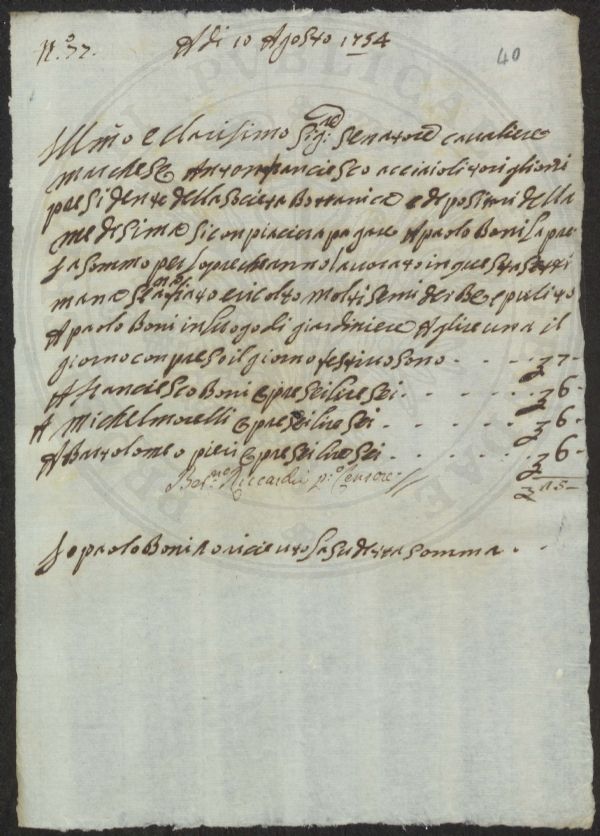 N.o 77.
A di 10 Agosto 1754
40
Ill mo e Clarisimo Sig.re Senatore cavaliere
marchese Antonfranciesco acciaioli torigloni
presidente della Societa Bottanica e depositari della
medesima si conpiacera pagare A paolo Boni la pre
sa sommo per lopre che anno lavorato in questa setti
mana e ricolto molti semi di erbe e pulito
A paolo Boni in luogo di giardiniere A lire una il
giorno conpreso il giorno festivo sono - - - - 7 -
A franciesco Boni opre sei lire sei - - - - - 6 -
A Michel morelli opre sei lire sei - - - - - 6 -
A Bartolomeo pieri opre sei lire sei - - - - - 6 -
Riccardi p.o Censore
Io paolo Boni o riceuto la sudetta somma - -